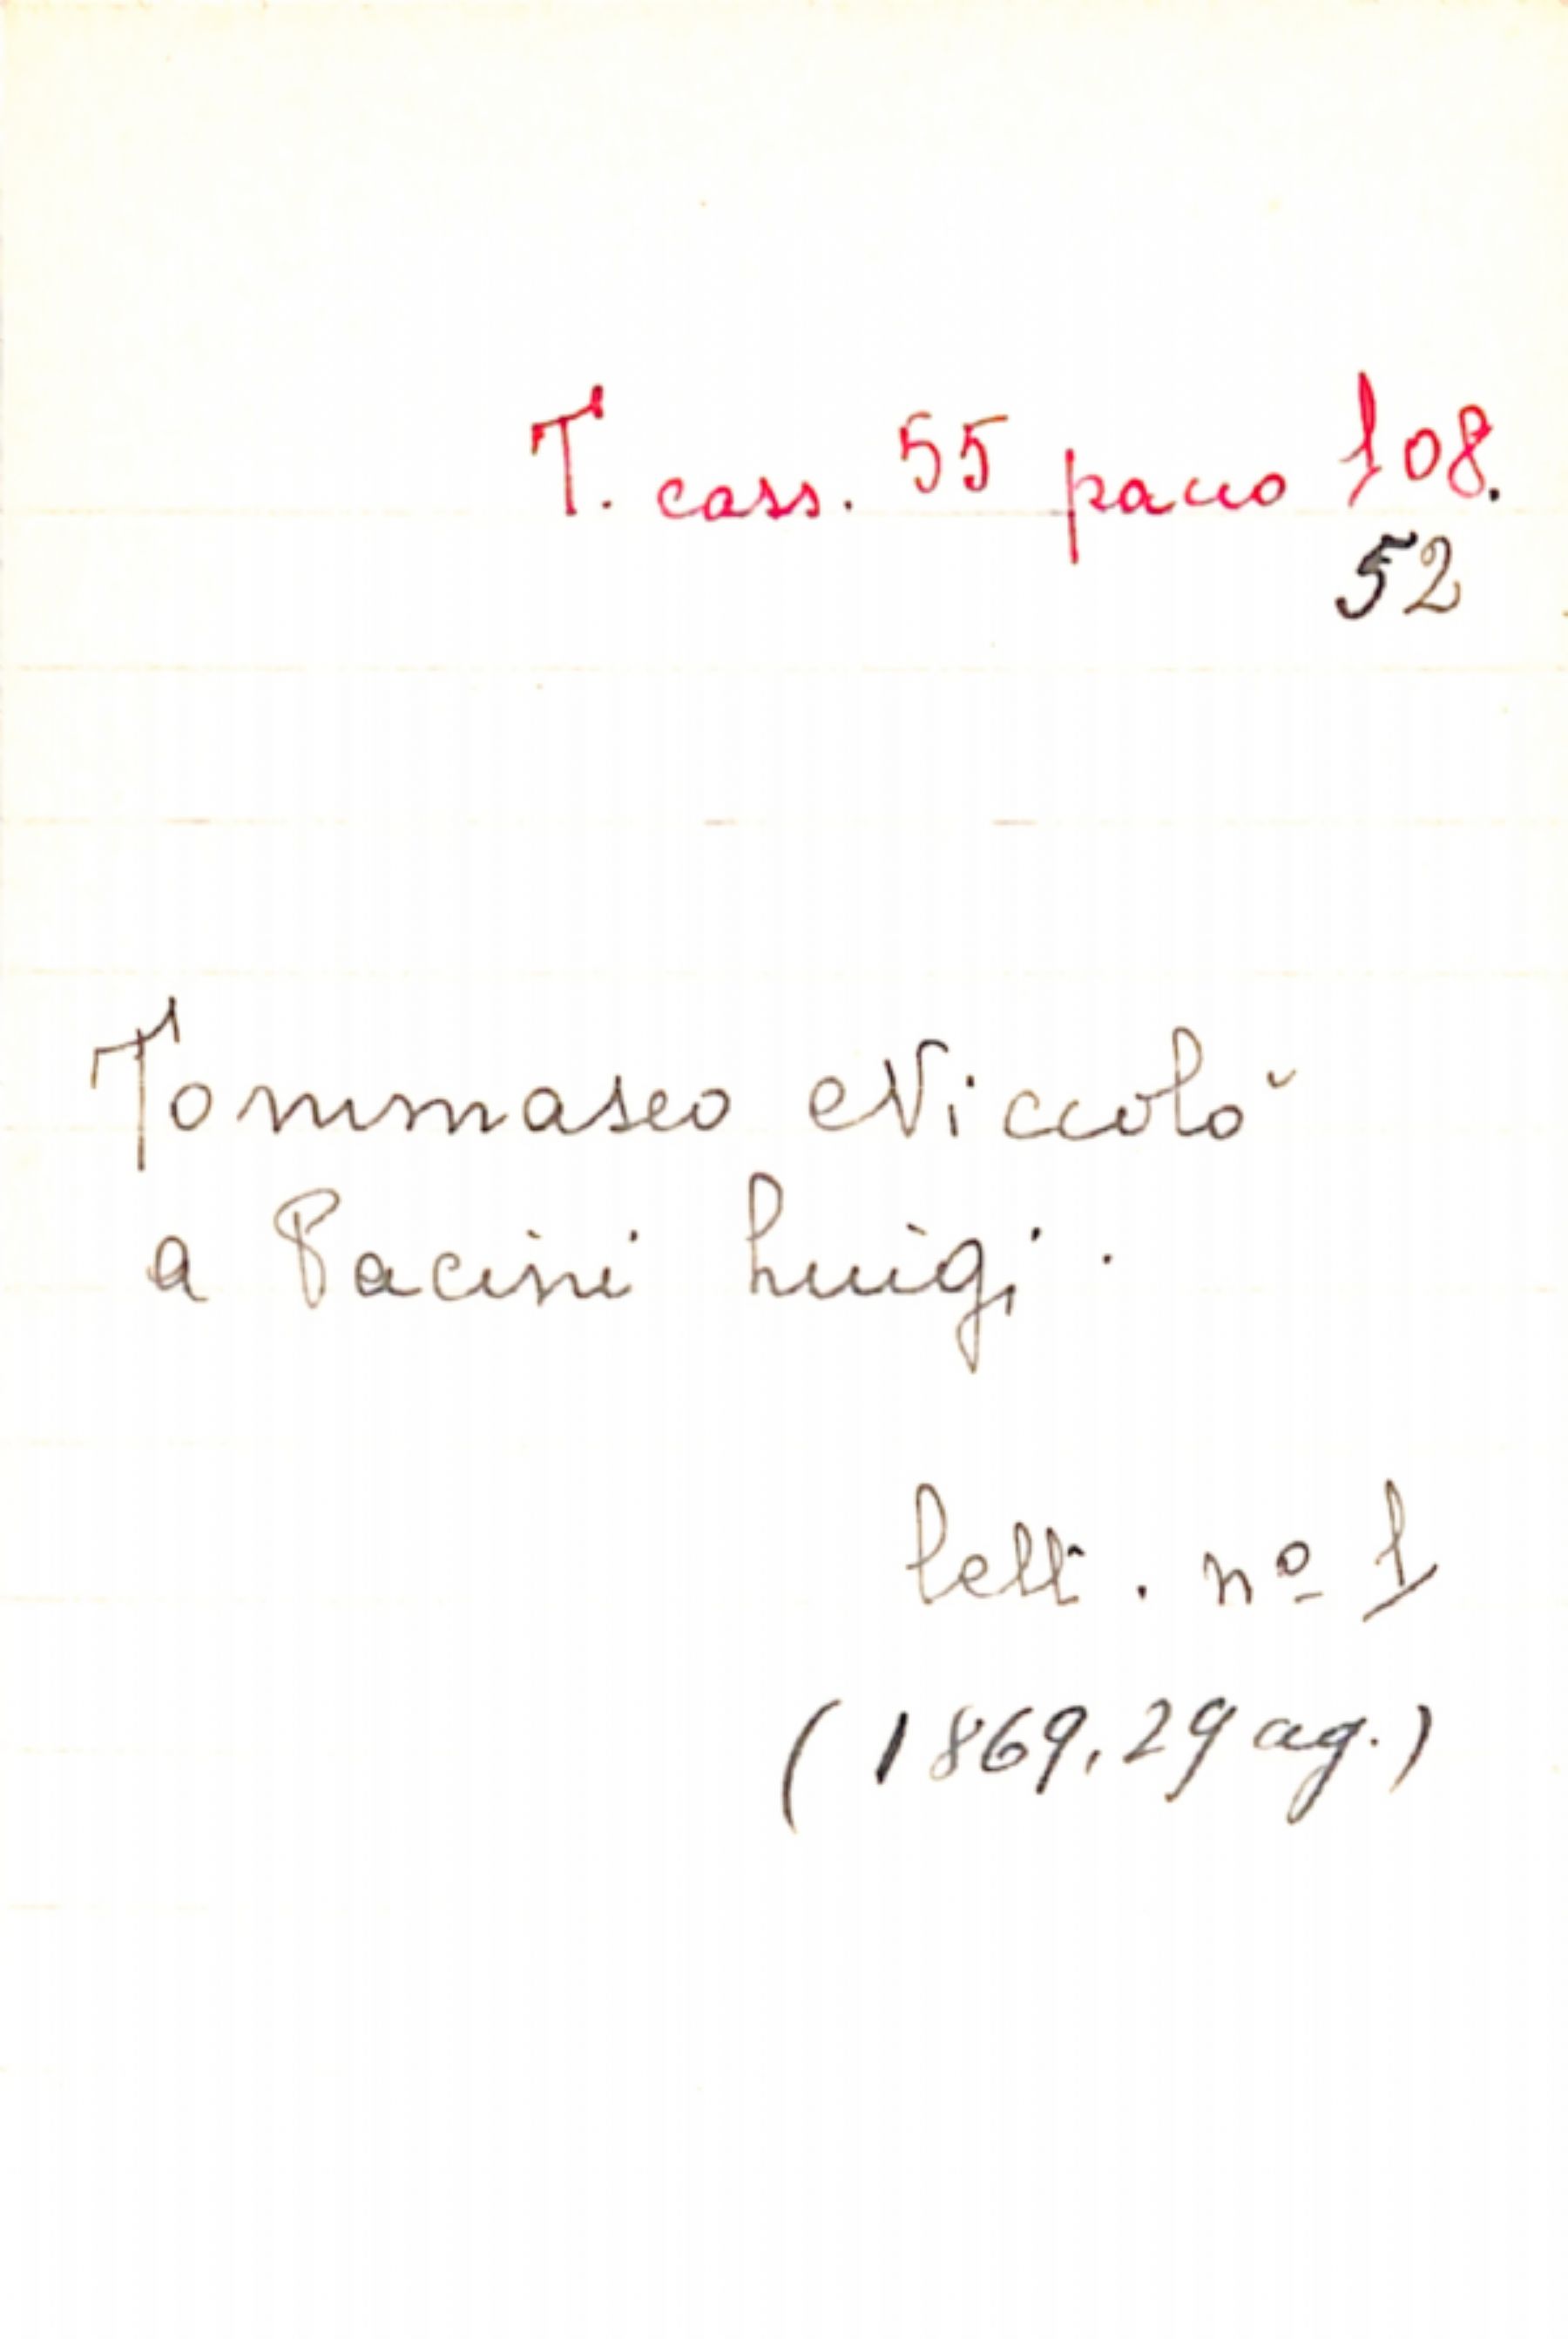 T. cass. 55 pacco 108.
52
Tommaseo Niccolò
a Pacini Luigi.
lett. nº 1
(1869, 29 ag.)